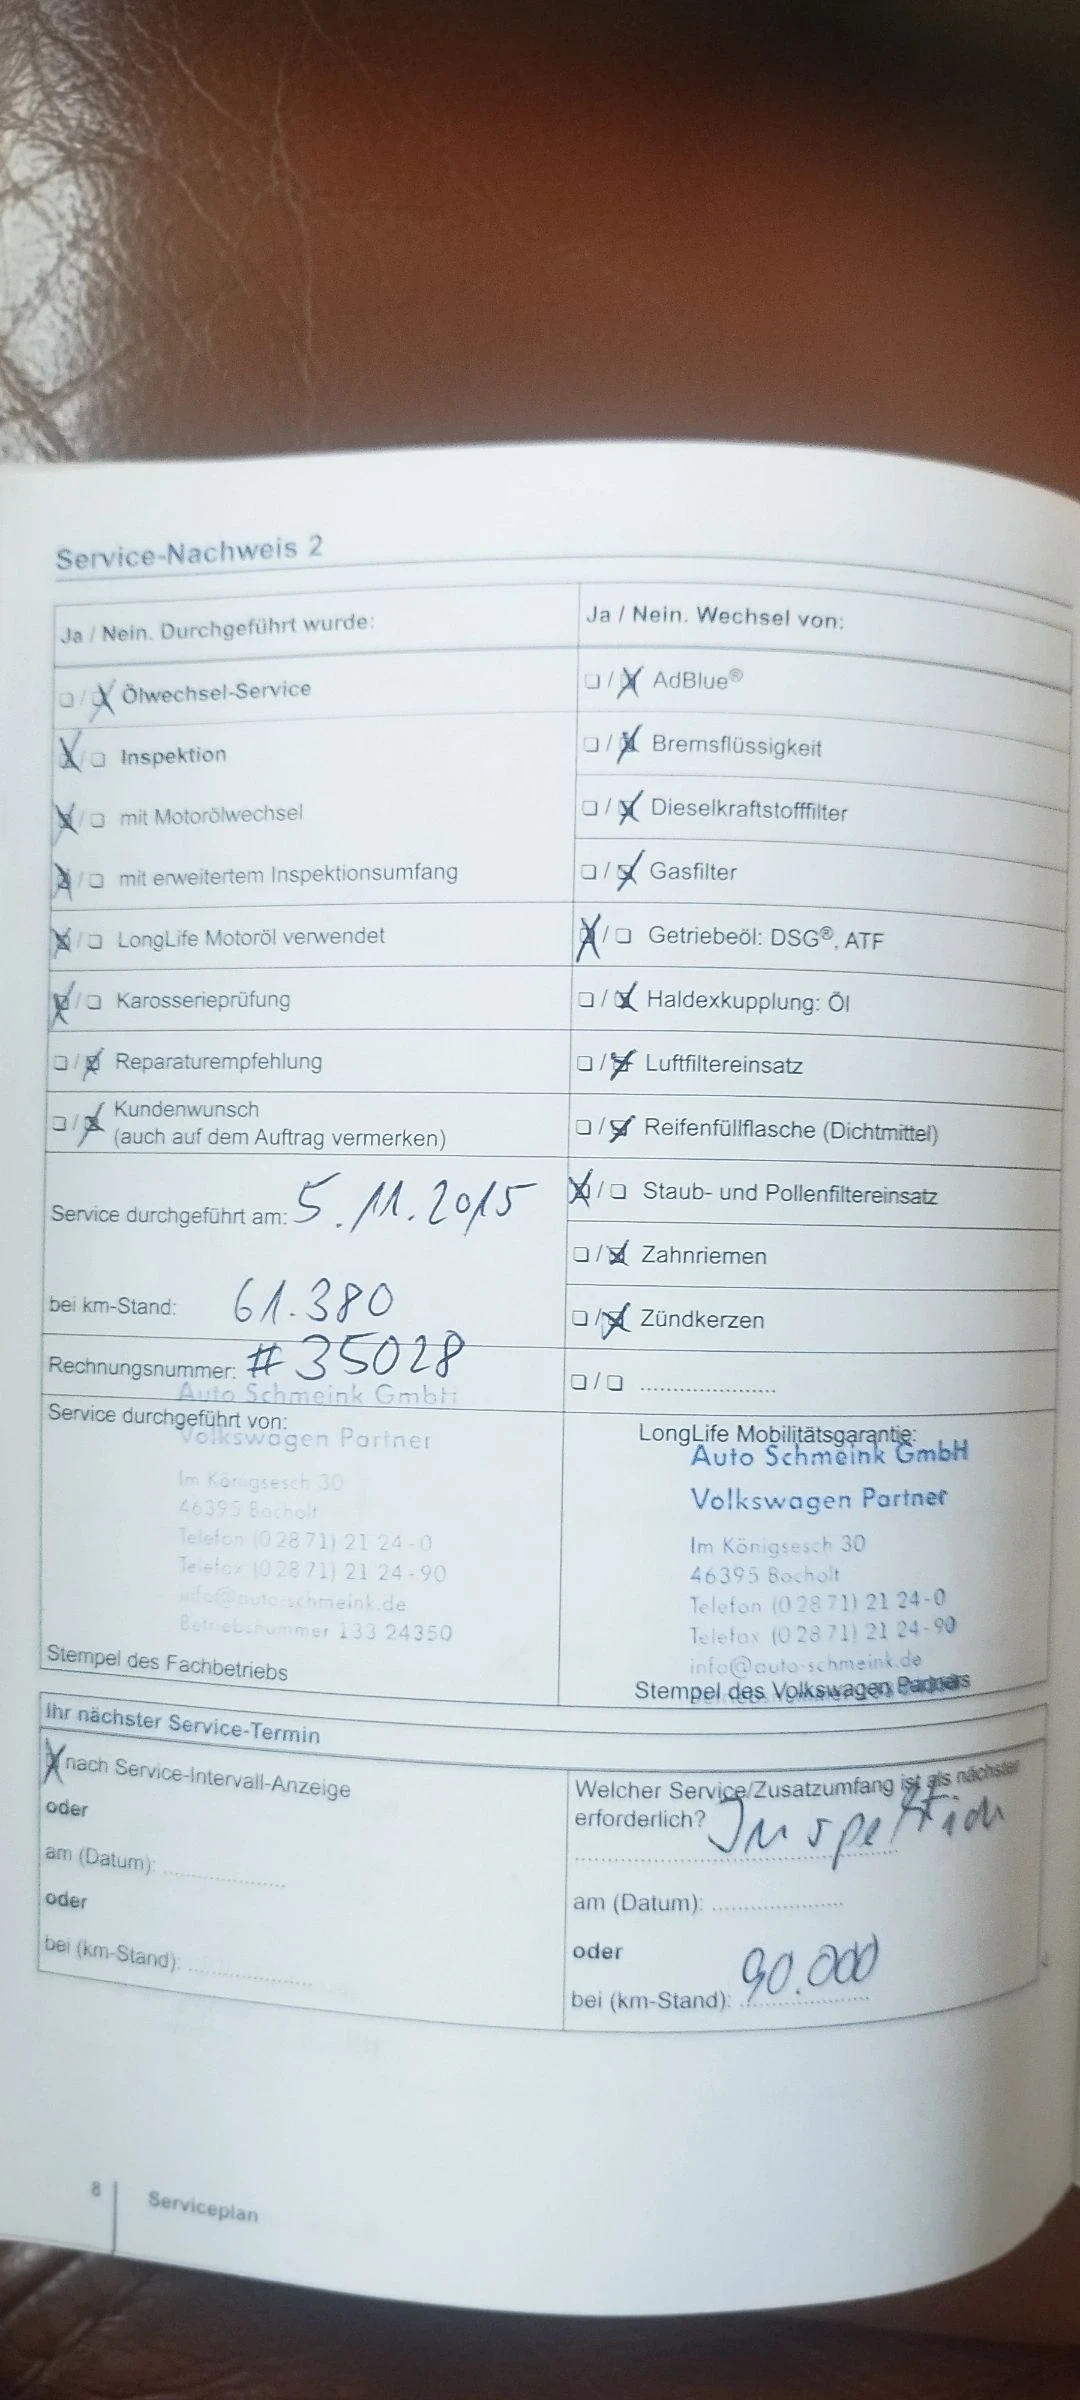 Service-Nachweis 2
Ja / Nein. Durchgeführt wurde:
☐ / ☒ Ölwechsel-Service
☒ / ☐ Inspektion
☒ / ☐ mit Motorölwechsel
☒ / ☐ mit erweitertem Inspektionsumfang
☒ / ☐ LongLife Motoröl verwendet
☒ / ☐ Karosserieprüfung
☐ / ☒ Reparaturempfehlung
☐ / ☒ Kundenwunsch
(auch auf dem Auftrag vermerken)
Service durchgeführt am: 5.11.2015
bei km-Stand: 61.380
Rechnungsnummer: # 35028
Service durchgeführt von:
Auto Schmeink GmbH
Volkswagen Partner
Im Königsesch 30
46395 Bocholt
Telefon (0 28 71) 21 24-0
Telefax (0 28 71) 21 24-90
info@auto-schmeink.de
Betriebsnummer 133 24350
Stempel des Fachbetriebs
Ja / Nein. Wechsel von:
☐ / ☒ AdBlue®
☐ / ☒ Bremsflüssigkeit
☐ / ☒ Dieselkraftstofffilter
☐ / ☒ Gasfilter
☒ / ☐ Getriebeöl: DSG®, ATF
☐ / ☒ Haldexkupplung: Öl
☐ / ☒ Luftfiltereinsatz
☐ / ☒ Reifenfüllflasche (Dichtmittel)
☒ / ☐ Staub- und Pollenfiltereinsatz
☐ / ☒ Zahnriemen
☐ / ☒ Zündkerzen
☐ / ☐ ......................
LongLife Mobilitätsgarantie:
Auto Schmeink GmbH
Volkswagen Partner
Im Königsesch 30
46395 Bocholt
Telefon (0 28 71) 21 24-0
Telefax (0 28 71) 21 24-90
info@auto-schmeink.de
Stempel des Volkswagen Partners
Ihr nächster Service-Termin
☒ nach Service-Intervall-Anzeige
oder
am (Datum): ....................
oder
bei (km-Stand): ....................
Welcher Service/Zusatzumfang ist als nächster
erforderlich? Inspektion
am (Datum): ....................
oder
bei (km-Stand): 90.000
8
Serviceplan